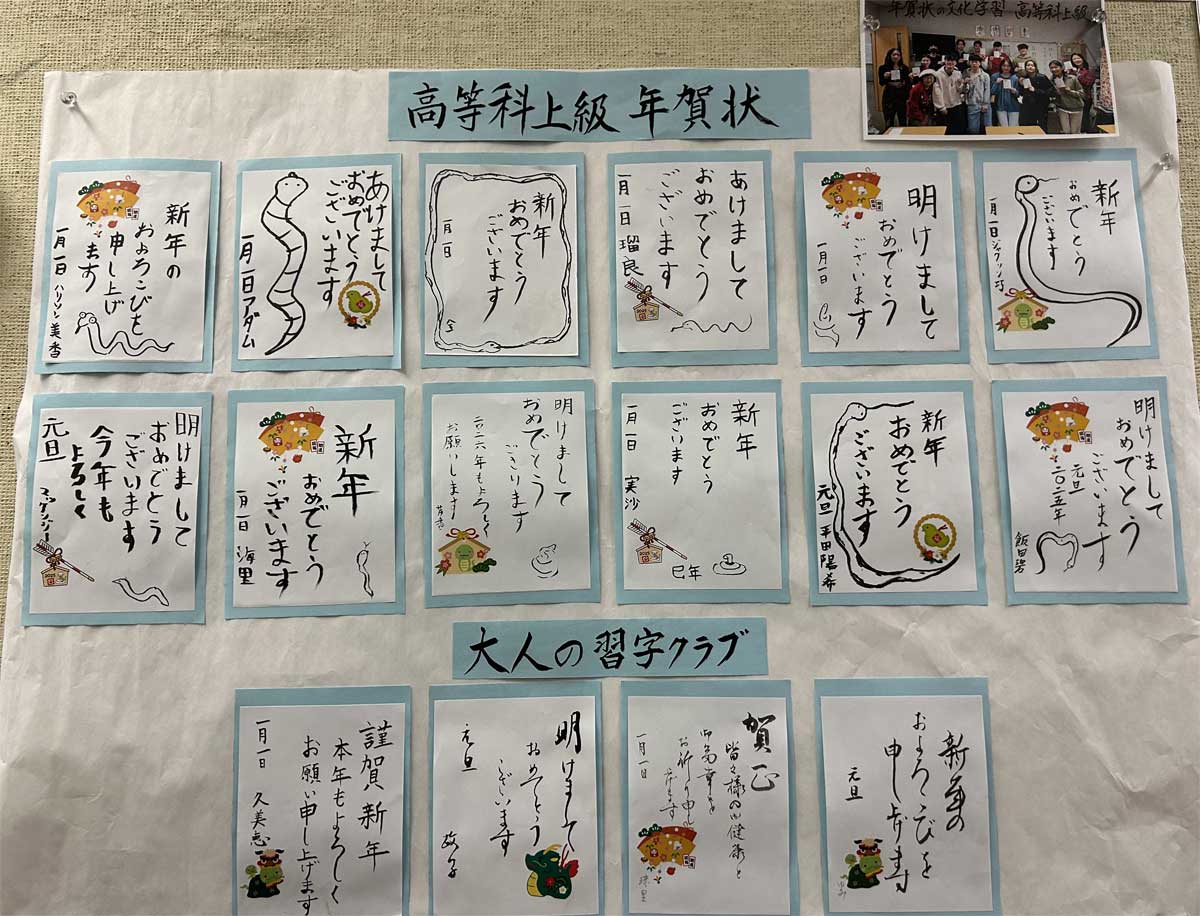 年賀状の文化学習 高等科上級
高等科上級 年賀状
新年の
およろこびを
申し上げ
ます
一月一日 ハリソン美香
あけまして
おめでとう
ございます
一月一日アダム
新年
おめでとう
ございます
一月一日
あけまして
おめでとう
ございます
一月一日 瑠良
2025
明けまして
おめでとう
ございます
一月一日
新年
おめでとう
ございます
一月一日
明けまして
おめでとう
ございます
今年も
よろしく
元旦
2025
新年
おめでとう
ございます
一月一日 海里
明けまして
おめでとう
ございます
もよろしく
お願いします
新年
おめでとう
ございます
一月一日 実沙
2025
巳年
新年
おめでとう
ございます
元旦 平田陽希
明けまして
おめでとう
ございます
元旦
二〇二五年
飯田碧
大人の習字クラブ
謹賀新年
本年もよろしく
お願い申し上げます
一月一日 久美恵
明けまして
おめでとう
ございます
元旦
賀正
皆々様の御健康と
御多幸を
お祈り申し
一月一日
新年の
およろこびを
申し上げます
元旦